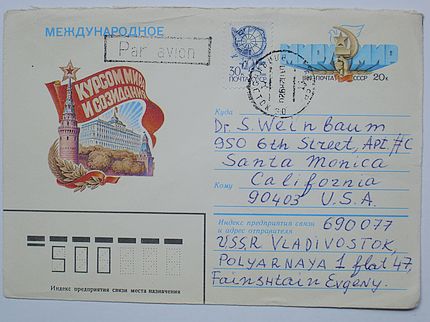 МЕЖДУНАРОДНОЕ
Par avion
30к
ПОЧТА
МИРУ МИР
ПОЧТА СССР 20к
КУРСОМ МИРА
И СОЗИДАНИЯ
Куда
Dr. S. Weinbaum
950 6th Street, APT. #C
Santa Monica
Кому
California
90403 U.S.A.
Индекс предприятия связи
и адрес отправителя
690077
USSR VLADIVOSTOK,
POLYARNAYA 1 flat 47,
Fainshtain Evgeny.
500
Индекс предприятия связи места назначения